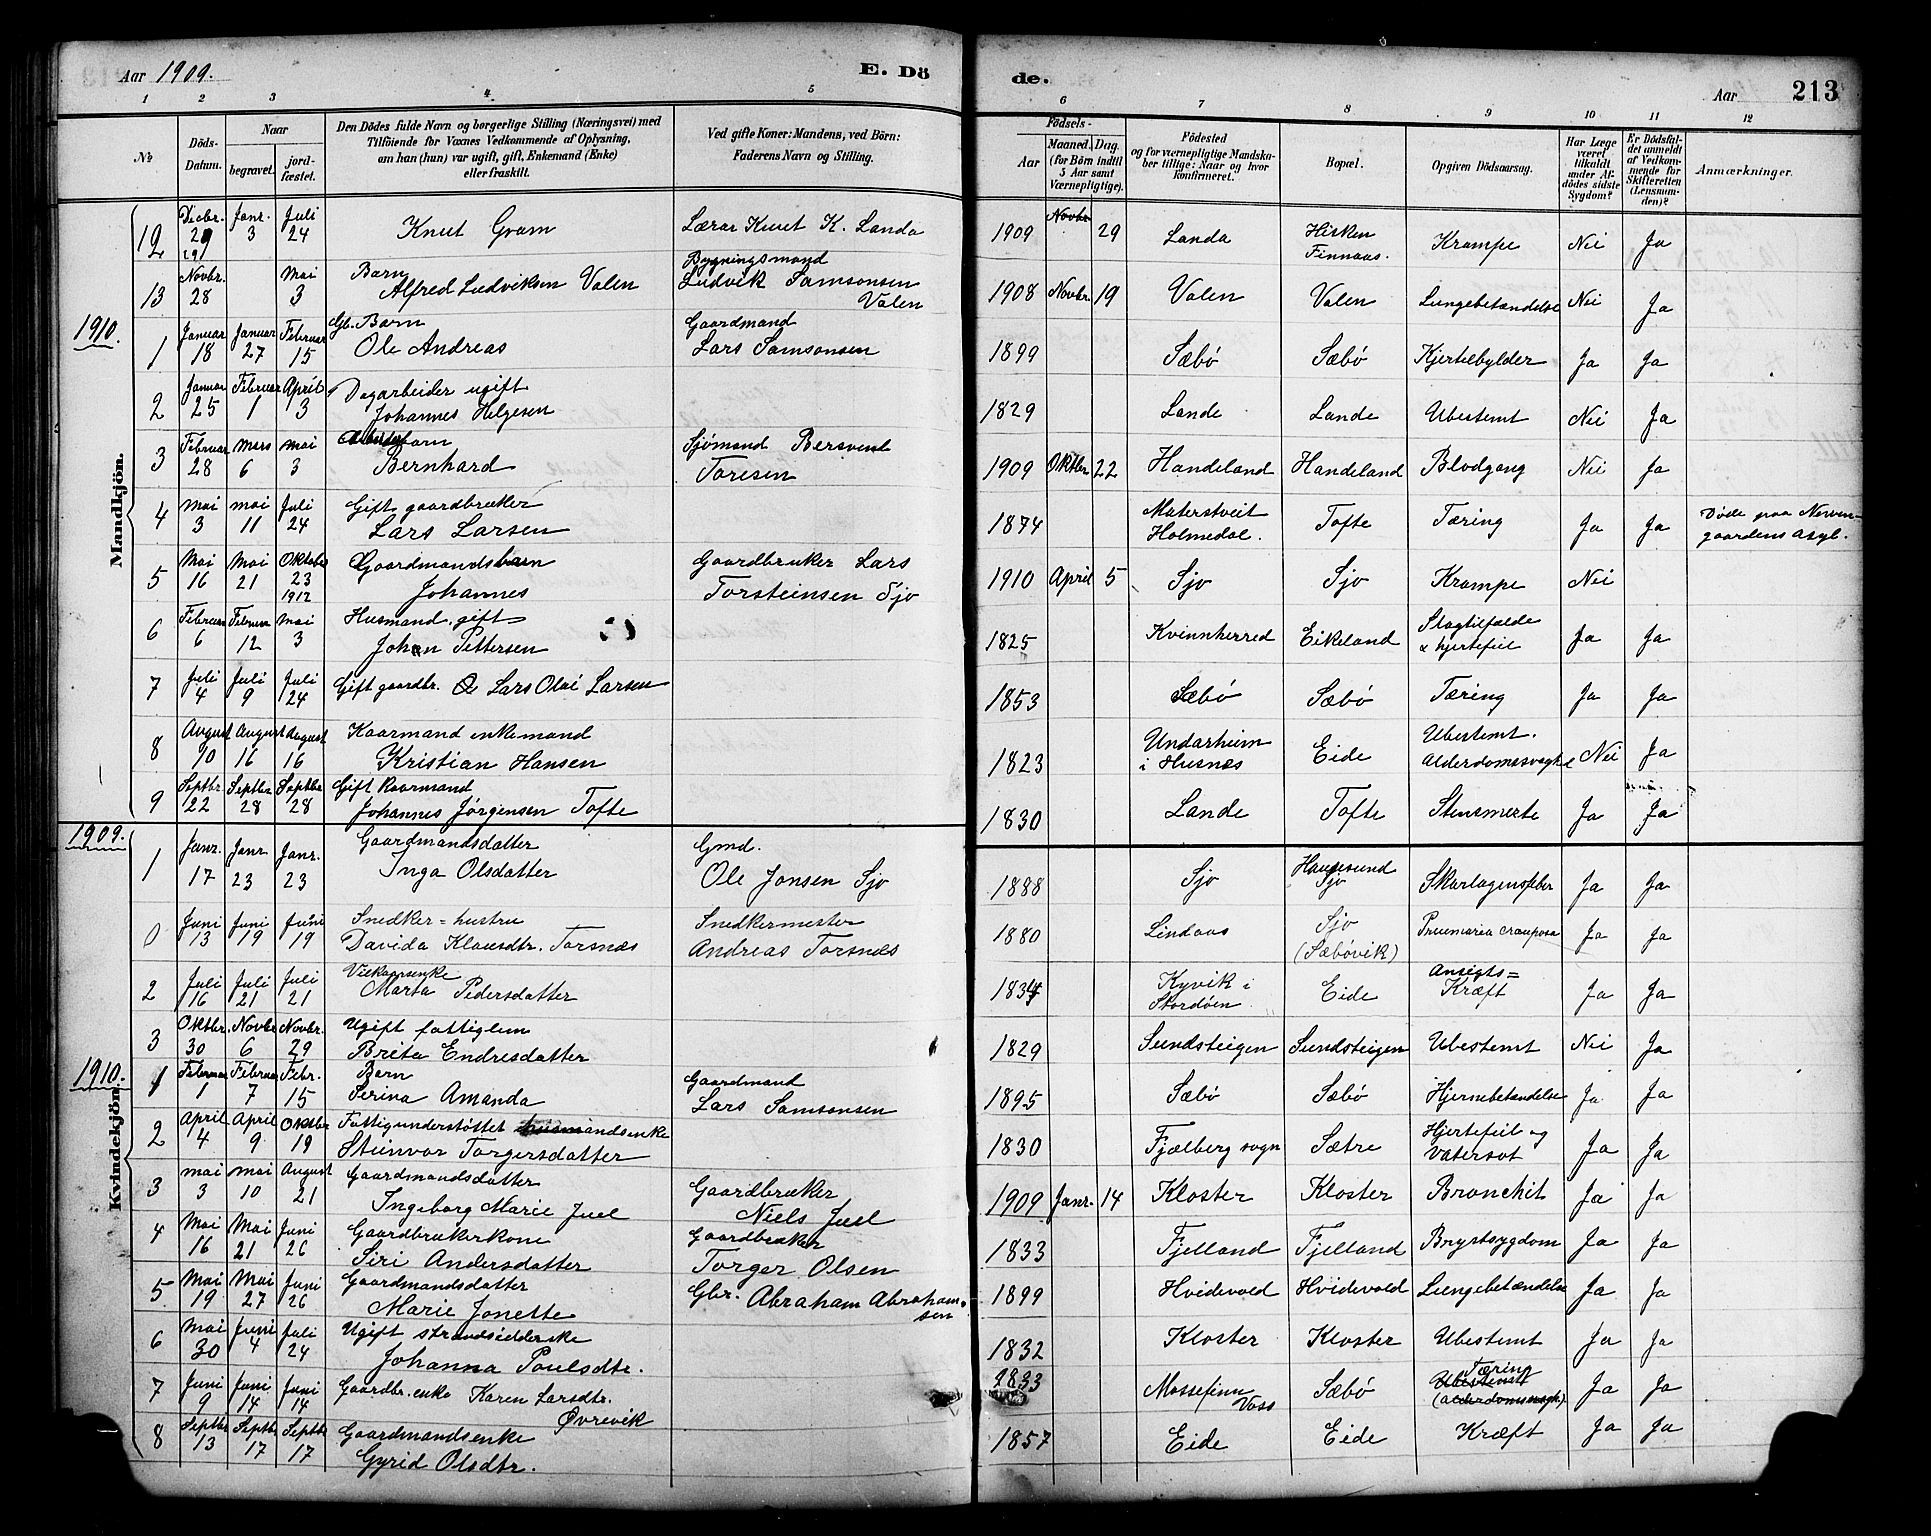 Aar 1909. E. Dö de. Aar 213
1 2 3 4 5 6 7 8 9 10 11 12
No Döds-Datum. Naar begravet. jord-fæstet. Den Dödes fulde Navn og borgerlige Stilling (Næringsvei) med Tilföiende for Voxnes Vedkommende af Oplysning, om han (hun) var ugift, gift, Enkemand (Enke) eller fraskilt. Ved gifte Koner: Mandens, ved Börn: Faderens Navn og Stilling. Födsels- Aar Maaned. Dag. (for Börn indtil 5 Aar samt Værnepligtige). Födested og for værnepligtige Mandska-ber tillige: Naar og hvor Konfirmeret. Bopæl. Opgiven Dödsaarsag. Har Læge været tilkaldt under Af-dödes sidste Sygdom? Er Dödsfal-det anmeldt af Vedkom-mende for Skifteretten (Lensman-den)? Anmærkninger.
Mandkjön.
12 Decbr. 29 Janr. 3 Juli 24 Knut Gram Lærar Knut K. Landa 1909 Novbr 29 Landa Hisken Finnaas. Krampe Nei Ja
13 Novbr. 28 Mai 3 Barn Alfred Ludviksen Valen Bygningsmand Ludvik Samsonsen Valen 1908 Novbr. 19 Valen Valen Lungebetændelse Nei Ja
1910.
1 Januar 18 Januar 27 Februar 15 Gb. Barn Ole Andreas Gaardmand Lars Samsonsen 1899 Sæbö Sæbö Kjertelbylder Ja Ja
2 Januar 25 Februar 1 April 3 Dagarbeider ugift Johannes Helgesen 1829 Lande Lande Ubestemt Nei Ja
3 Februar 28 Mars 6 Mai 3 barn Bernhard Sjömand Bersvend Toresen 1909 Oktbr 22 Handeland Handeland Blodgang Nei Ja
4 Mai 3 Mai 11 Juli 24 Gift gaardbruker Lars Larsen 1874 Materstveit Holmedal. Tofte Tæring Ja Ja Döde paa Neven-gaardens Asyl.
5 Mai 16 Mai 21 Oktober 23 1912 Gaardmandsbarn Johannes Gaardbruker Lars Torsteinsen Sjo 1910 April 5 Sjo Sjo Krampe Nei
6 Februar 6 Februar 12 Mai 3 Husmand, gift Johan Pettersen 1825 Kvinnherred Eikeland Slagtilfælde & hjertefeil Ja Ja
7 Juli 4 Juli 9 Juli 24 Gift gaardbr. Lars Olai Larsen 1853 Sæbö Sæbö Tæring Ja Ja
8 August 10 August 16 August 16 Kaarmand enkemand Kristian Hansen 1823 Undarheim i Husnes Eide Ubestemt. Alderdomssvaghed Nei Ja
9 Septbr. 22 Septbr 28 Septbr 28 Gift Kaarmand Johannes Jörgensen Tofte 1830 Lande Tofte Stensmerte Ja Ja
1909.
Kvindekjön.
1 Janr. 17 Janr. 23 Janr. 23 Gaardmandsdatter Inga Olsdatter Gmd. Ole Jonsen Sjo 1888 Sjo Haugesund Sjo Skarlagensfeber Ja Ja
0 Juni 13 Juni 19 Juni 19 Snedker=hustru Davida Klausdtr. Torsnæs Snedkermester Andreas Torsnæs 1880 Lindaas Sjo (Sæbövik) Pneumonia crouposa Ja Ja
2 Juli 16 Juli 21 Juli 21 Vilkaarsenke Marta Pedersdatter 1834 Kyvik i Stordöen Eide Ansigts= Kræft Ja Ja
3 Oktbr. 30 Novbr 6 Novbr. 29 Ugift fattiglem Brita Endresdatter 1829 Sundsteigen Sundsteigen Ubestemt Nei Ja
1910.
1 Februar 1 Februar 7 Febr. 15 Barn Serina Amanda Gaardmand Lars Samsonsen 1895 Sæbö Sæbö Hjernebetændelse Ja Ja
2 April 4 April 9 Oktbr 19 Fattigunderstöttet husmandsenke Steinvor Torgersdatter 1830 Fjelberg sogn Sætre Hjertefeil og Vatersot Ja Ja
3 Mai 3 Mai 10 August 21 Gaardmandsdatter Ingeborg Marie Juel Gaardbruker Niels Juel 1909 Janr. 14 Kloster Kloster Bronchit Ja Ja
4 Mai 16 Mai 21 Juni 26 Gaardbrukerkone Siri Andersdatter Gaardbruker Torger Olsen 1833 Fjelland Fjelland Brystsygdom Ja Ja
5 Mai 19 Mai 27 Juni 26 Gaardmandsdatter Marie Jonette Gbr. Abraham Abraham-sen 1899 Hvidevold Hvidevold Lungebetændelse Ja Ja
6 Mai 30 Juni 4 Juli 24 Ugift strandsidderske Johanna Poulsdtr. 1832 Kloster Kloster Ubestemt Ja Ja
7 Juni 9 Juni 14 Juni 14 Gaardbr. enke Karen Larsdtr. Øvrevik 1833 Mossefinn Voss Sæbö Tæring Ubestemt (Alderdomssvgh.) Ja Ja
8 Septbr 13 Septbr 17 Septbr 17 Gaardmandsenke Gyrid Olsdtr. 1857 Eide Eide Kræft Ja Ja